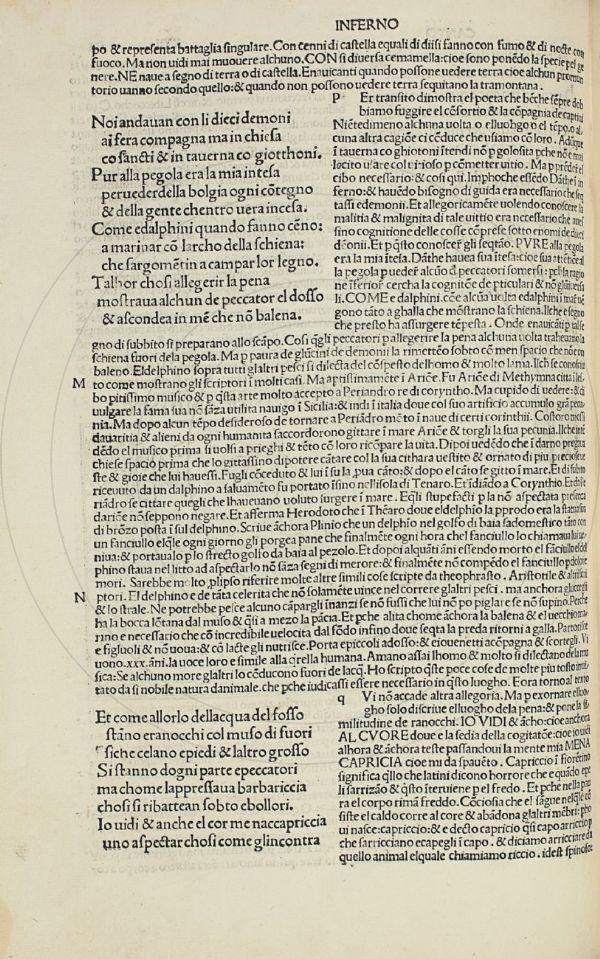 INFERNO
po & representa battaglia singulare. Con cenni di castella equali di diisi fanno con fumo & di nocte con
fuoco. Ma non uidi mai muouere alchuno. CON si diuersa cemamella: cioe sono ponēdo la specie pel ge
nere. NE naue a segno di terra o di castella. Enauicanti quando possone uedere terra cioe alchun promon
torio uanno secondo quello: & quando non possono uedere terra sequitano la tramontana.
Noi andauan con li dieci demoni
ai fera compagna ma in chiesa
co sancti & in tauerna co giotthoni.
Pur alla pegola era la mia intesa
per uederdella bolgia ogni cōtegno
& della gente chentro uera incesa.
Come edalphini quando fanno cēno:
a marinar cō larcho della schiena:
che sargomētin a campar lor legno.
Talhor chosi allegerir la pena
mostraua alchun de peccator el dosso
& ascondea in mē che nō balena.
P Er transito dimostra el poeta che bēche sēpre deb
biamo fuggire el cōsortio & la cōpagnia de captiui
Niētedimeno alchuna uolta o elluohgo o el tēpo o al
cuna altra cagiōe ci cōduce che usiamo cō loro. Adūque
i tauerna co ghiotoni itendi nō p golosita pche nō e mai
licito usare col uitioso p cōmetter uitio. Ma p prēder el
cibo necessario: & cosi qui. Impho che essēdo Dāthe i in
ferno: & hauēdo bisogno di guida era necessario che seg
tassi edemonii. Et allegoricamēte uolendo conoscere la
malitia & malignita di tale uittio era necessario che aues
sino cognitione delle cosse cōprese sotto enomi de dieci
dēonii. Et p q̄sto conoscer gli seqtāo. PVRE alla pegola
era la mia itesa. Dāthe hauea sua itesa: cioe sua attētiōe al
la pegola p ueder alcuō d peccatori somersi: pche la ragio
ne iferior cercha la cognitiōe de pticulari & nō gli uniuersa
li. COME edalphini. cōe alcūa uolta edalphini i mare uē
gono tāto a ghalla che mōstrano la schiena. Ilche e segno
che presto ha assurgere tēpesta. Onde enauicāti p talse
gno di subbito si preparano allo scāpo. Cosi q̄gli peccatori p allegerire la pena alchuna uolta traheuano la
schiena fuori dela pegola. Ma p paura de glūcini de demonii la rimettēo sobto cō men spacio che nō e un
baleno. Eldelphino sopra tutti glaltri pesci si dilecta del cōspesto del homo & molto lama. Ilch se conosce
M to come mostrano gli scriptori i molti casi. Ma aptissimamēte i Ariōe. Fu Ariōe di Methymna citta i les
bo pitissimo musico & p q̄sta arte molto accepto a Periandro re di coryntho. Ma cupido di uedere: & di
uulgare la fama sua nō sāza utilita nauigo i Sicilia: & indi i italia doue col suo artificio accumulo grā pecu
nia. Ma dopo alcun tēpo desideroso de tornare a Periādro mōto i naue di certi corinthii. Costoro mossi
dauaritia & alieni da ogni humanita saccordorono gittare i mare Ariōe & torgli la sua pecunia. Ilche inte
dēdo el musico prima si uolsi a prieghi & tēto cō loro ricōpare la uita. Dipoi uedēdo che i darno pregaua
chiese spacio prima che lo gittassino dipotere cātare col la sua cithara uestito & ornato di piu preciose ue
ste & gioie che lui hauessi. Fugli cōceduto & lui i su la pua cāto: & dopo el cāto se gitto i mare. Et di subito
riceuuto da un dalphino a saluamēto fu portato isino nellisola di Tenaro. Et idiādo a Corynthio. Et di pe
riādro se cittare quegli che lhaueuano uoluto surgere i mare. Eqli stupefacti p la nō aspectata presenza
dariōe nō seppono negare. Et afferma Herodoto che i Thēaro doue eldelphino la pprodo era la statua sua
di brōzo posta i sul delphino. Scriue āchora Plinio che un delphio nel golfo di baia sadomestico tāto con
un fanciullo elq̄le ogni giorno gli porgea pane che finalmēte ogni hora chel fanciullo lo chiamaua lui ue
niua: & portaualo p lo strecto golfo da baia al pezolo. Et dopoi alquāti āni essendo morto el fanciullo eldel
phino staua nel litto ad aspectarlo nō sāza segni di merore: & finalmēte nō compēdo el fanciullo p dolore
mori. Sarebbe molto plipso riferire molte altre simili cose scripte da theophrasto. Aristotile & altri scri
N ptori. El delphino e de tāta celerita che nō solamēte uince nel correre glaltri pesci. ma anchora gluccegli
& lo strale. Ne potrebbe pesce alcuno cāpargli inanzi se nō fussi che lui nō po piglare se nō supino. Perche
ha la bocca lōtana dal muso & q̄si a mezo la pācia. Et pche alita chome āchora la balena & el uecchio ma
rino e necessario che cō increbile uelocita dal fōdo infino doue seqta la preda ritorni a galla. Partorisce
e figluoli & nō uoua: & cō lacte gli nutrisce. Porta epiccoli adosso: & e iouenetti acōpagna & scortegli. Vi
uono .xxx. āni. la uoce loro e simile alla q̄rella humana. Amano assai lhomo & molto si dilectano della mu
sica: Se alchuno more glaltri lo cōducono fuori de lacq̄. Ho scripto q̄ste poce cose de molte piu tosto inui
tato da si nobile natura danimale. che pche iudicassi essere necessario in q̄sto luogho. Eora torno al texto
Et come allorlo dellacqua del fosso
stāno eranocchi col muso di fuori
siche celano epiedi & laltro grosso
Si stanno dogni parte epeccatori
ma chome lappressaua barbariccia
chosi si ribattean sobto ebollori.
Io uidi & anche el cor me naccapriccia
uno aspectar chosi come glincontra
q Vi nō accade altra allegoria. Ma p exornare elluo
gho solo discriue elluogho dela pena: & pone la si
militudine de ranocchi. IO VIDI & ācho: cioe anchora
AL CVORE doue e la sedia della cogitatōe: cioe io uidi
alhora & āchora teste passandoui la mente mia MENA
CAPRICIA cioe mi da spauēto. Capriccio i fiorētino
significa q̄llo che latini dicono horrore che equādo epe
li sarrizāo & q̄sto iteruiene pel fredo. Et pche nella pau
ra el corpo rimā freddo. Cōciosia che el sāgue nelq̄le cō
siste el caldo corre al core & abādona glaltri mēbri: pho
ui nasce: capriccio: & e decto capricio q̄si capo arriccio p
che sarricciano ecapegli i capo. & diciamo arricciare da
quello animal elquale chiamiamo riccio. idest spinoso